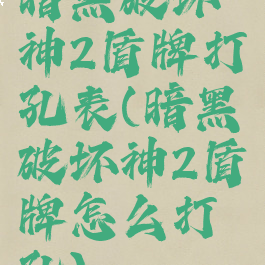 暗黑破坏
神2盾牌打
孔表(暗黑
破坏神2盾
牌怎么打
孔)